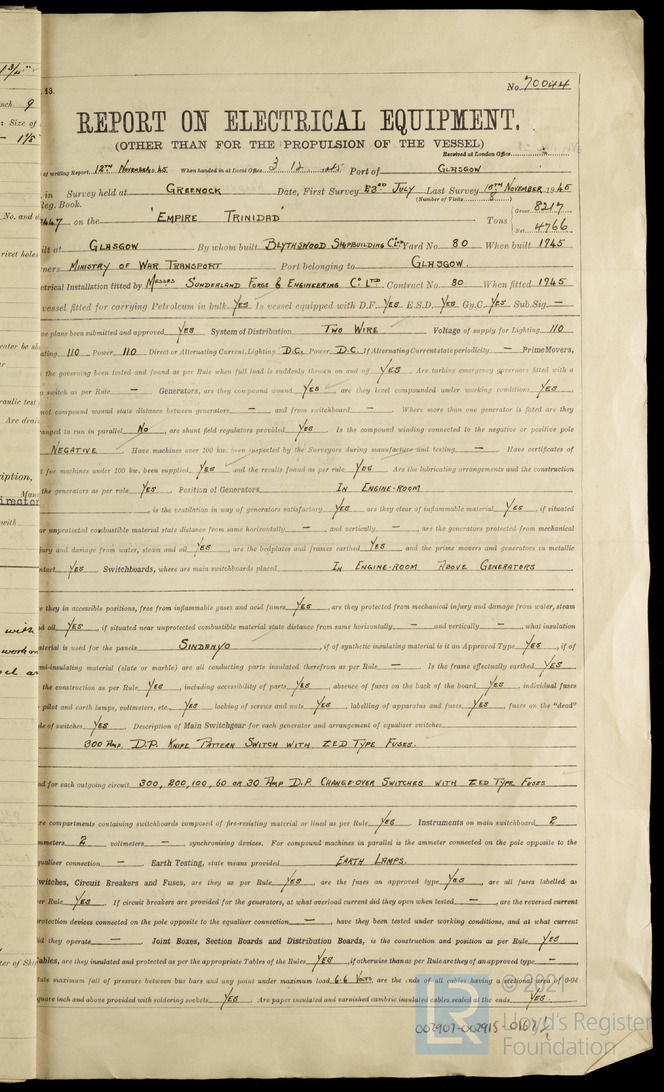 13.
No. 70044
REPORT ON ELECTRICAL EQUIPMENT.
(OTHER THAN FOR THE PROPULSION OF THE VESSEL)
Received at London Office
of writing Report 12TH NOVEMBER 1945 When handed in at Local Office 3 12 1945 Port of GLASGOW
in Survey held at GREENOCK Date, First Survey 23RD JULY Last Survey 15TH NOVEMBER 1945
Reg. Book. (Number of Visits 8)
447 on the 'EMPIRE TRINIDAD' Tons Gross 8217 Net 4766
ilt at GLASGOW By whom built BLYTHSWOOD SHIPBUILDING Co LTD Yard No. 80 When built 1945
ners MINISTRY OF WAR TRANSPORT Port belonging to GLASGOW.
ectrical Installation fitted by MESSRS SUNDERLAND FORGE & ENGINEERING Co LTD Contract No. 80 When fitted 1945
vessel fitted for carrying Petroleum in bulk YES Is vessel equipped with D.F. YES E.S.D. YES Gy.C. YES Sub.Sig. —
e plans been submitted and approved YES System of Distribution TWO WIRE Voltage of supply for Lighting 110
ating 110 Power 110 Direct or Alternating Current, Lighting D.C. Power D.C. If Alternating Current state periodicity — Prime Movers,
the governing been tested and found as per Rule when full load is suddenly thrown on and off YES Are turbine emergency governors fitted with a
switch as per Rule — Generators, are they compound wound YES, are they level compounded under working conditions YES,
not compound wound state distance between generators — and from switchboard — Where more than one generator is fitted are they
anged to run in parallel No, are shunt field regulators provided YES Is the compound winding connected to the negative or positive pole
NEGATIVE Have machines over 100 kw. been inspected by the Surveyors during manufacture and testing — Have certificates of
t for machines under 100 kw. been supplied YES and the results found as per rule YES Are the lubricating arrangements and the construction
the generators as per rule YES Position of Generators IN ENGINE-ROOM
, is the ventilation in way of generators satisfactory YES are they clear of inflammable material YES, if situated
ar unprotected combustible material state distance from same horizontally — and vertically —, are the generators protected from mechanical
jury and damage from water, steam and oil YES, are the bedplates and frames earthed YES and the prime movers and generators in metallic
ntact YES Switchboards, where are main switchboards placed IN ENGINE-ROOM ABOVE GENERATORS
e they in accessible positions, free from inflammable gases and acid fumes YES, are they protected from mechanical injury and damage from water, steam
d oil YES, if situated near unprotected combustible material state distance from same horizontally — and vertically —, what insulation
aterial is used for the panels SINDANYO, if of synthetic insulating material is it an Approved Type YES, if of
mi-insulating material (slate or marble) are all conducting parts insulated therefrom as per Rule — Is the frame effectually earthed YES
the construction as per Rule YES, including accessibility of parts YES, absence of fuses on the back of the board YES, individual fuses
pilot and earth lamps, voltmeters, etc. YES locking of screws and nuts YES, labelling of apparatus and fuses YES, fuses on the "dead"
de of switches YES Description of Main Switchgear for each generator and arrangement of equaliser switches
300 Amp. D.P. KNIFE PATTERN SWITCH WITH ZED TYPE FUSES.
nd for each outgoing circuit 300, 200, 100, 60 OR 30 AMP D.P. CHANGE-OVER SWITCHES WITH ZED TYPE FUSES
re compartments containing switchboards composed of fire-resisting material or lined as per Rule YES Instruments on main switchboard 2
mmeters 2 voltmeters — synchronising devices. For compound machines in parallel is the ammeter connected on the pole opposite to the
qualiser connection — Earth Testing, state means provided EARTH LAMPS.
witches, Circuit Breakers and Fuses, are they as per Rule YES, are the fuses an approved type YES, are all fuses labelled as
er Rule YES If circuit breakers are provided for the generators, at what overload current did they open when tested —, are the reversed current
rotection devices connected on the pole opposite to the equaliser connection —, have they been tested under working conditions, and at what current
id they operate — Joint Boxes, Section Boards and Distribution Boards, is the construction and position as per Rule YES
ables, are they insulated and protected as per the appropriate Tables of the Rules YES, if otherwise than as per Rule are they of an approved type —,
tate maximum fall of pressure between bus bars and any point under maximum load 6.6 VOLTS, are the ends of all cables having a sectional area of 0·04
quare inch and above provided with soldering sockets YES. Are paper insulated and varnished cambric insulated cables sealed at the ends YES.
© 2021
Lloyd's Register
Foundation
LR
002907-002915-0157